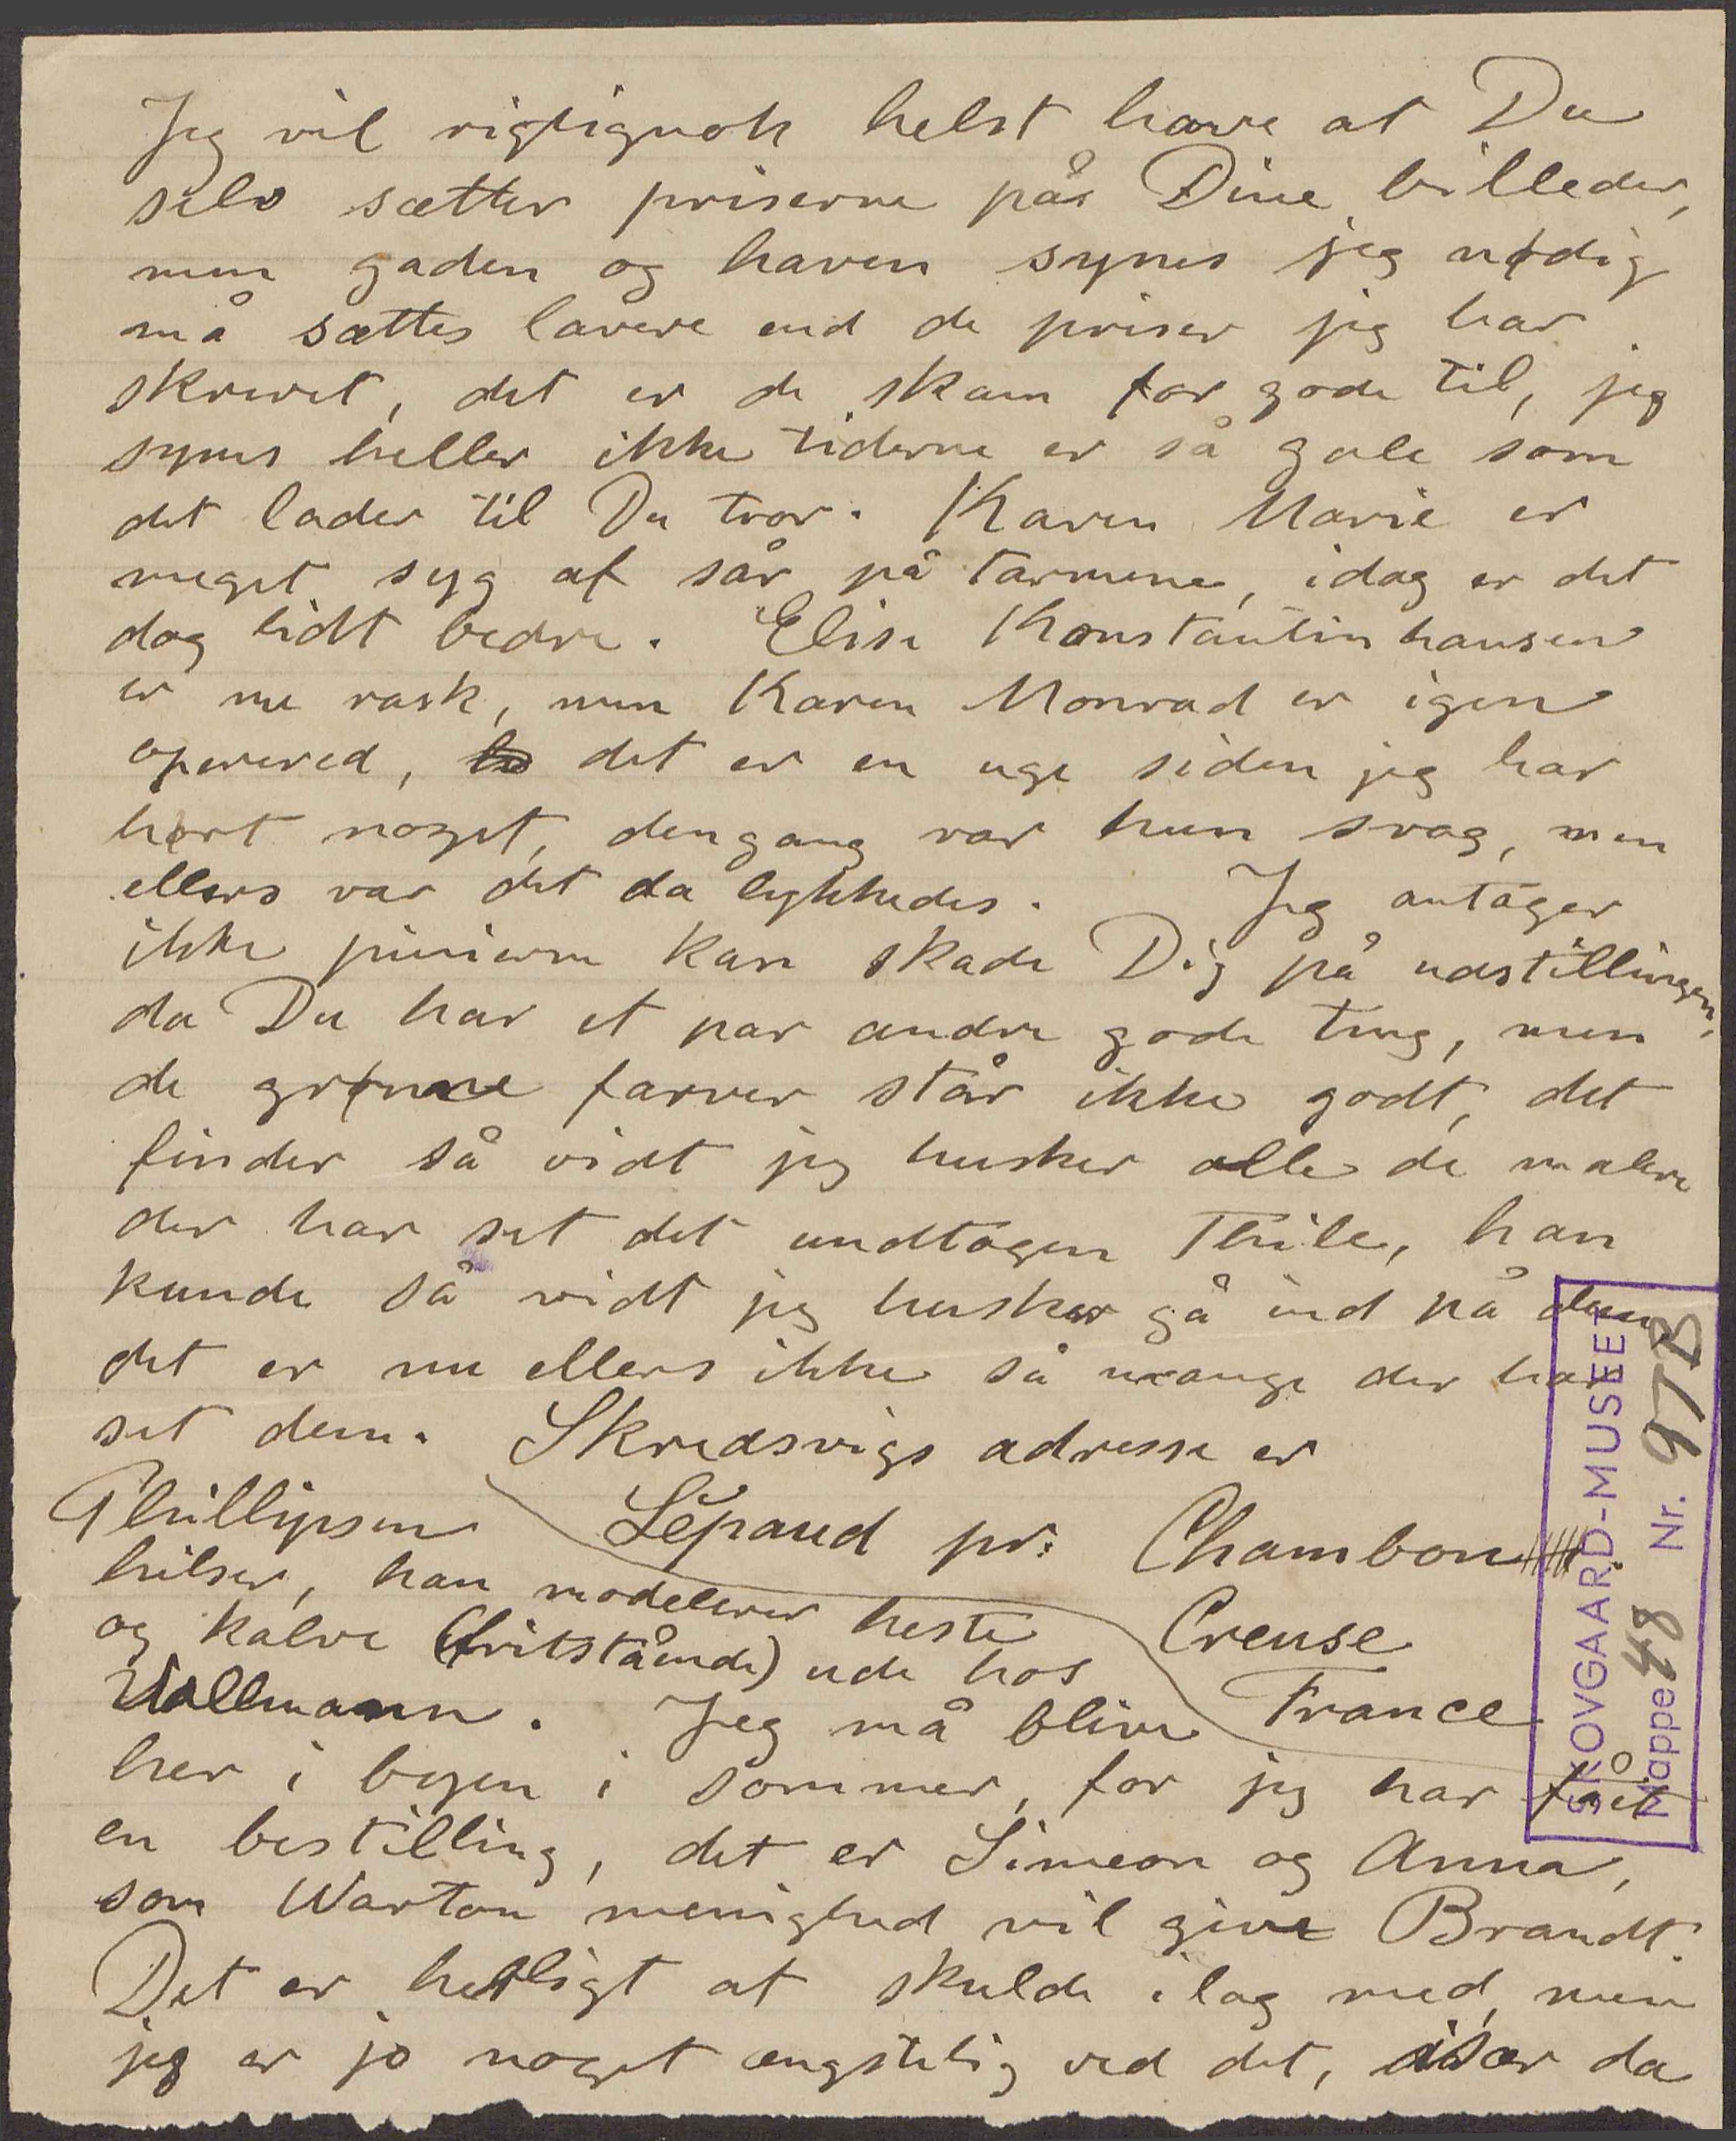 Jeg vil rigtignok helst have at Du
selv sætter priserne på Dine billeder,
men gaden og haven synes jeg nødig
må sættes lavere end de priser jeg har
skrevet, det er de skam for gode til, jeg
synes heller ikke tiderne er så gale som
det lader til Du tror. Karen Marie er
meget syg af sår på tarmene, idag er det
dog lidt bedre. Elise Konstantin hansen
er nu rask, men Karen Monrad er igen
operered, det er en uge siden jeg har
hørt noget, dengang var hun svag, men
ellers var det da lykkedes. Jeg antager
ikke pinierne kan skade Dig på udstillingen,
da Du har et par andre gode ting, men
de grønne farver står ikke godt, det
finder så vidt jeg husker alle de malere
der har set det undtagen Thile, han
kunde så vidt jeg husker gå ind på dem,
det er nu ellers ikke så mange der har
set dem. Skredsvigs adresse er
Lépaud pr: Chambon
Creuse
France
Phillipsen
hilser, han modelerer heste
og kalve (fritstående) ude hos
Wallmann. Jeg må blive
her i byen i sommer, for jeg har fået
en bestilling, det er Simeon og Anna,
som Wartou menighed vil give Brandt.
Det er herligt at skulde ilag med, men
jeg er jo noget ængstelig ved det, især da
SKOVGAARD-MUSEET
Mappe 48 Nr. 97B